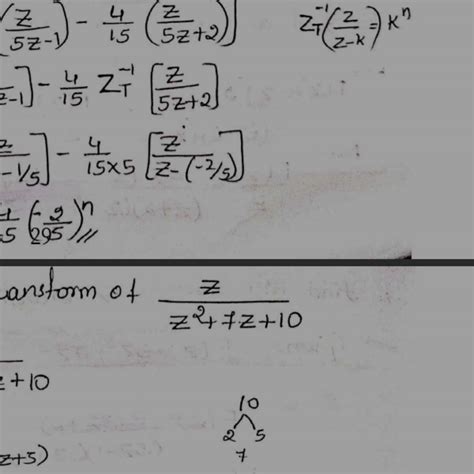 [z/5z-1) - 4/15 (z/5z+2)] Z_T^-1(z/z-k) = k^n
z-1] - 4/15 Z_T^-1 [z/5z+2]
-1/5] - 4/15×5 [z/z-(-2/5)]
(-2/5)^n //
ansform of z/z²+7z+10
z+10
10
2 5
7
z+5)